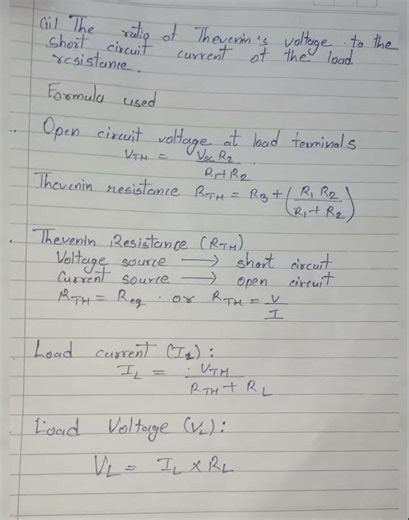 Gil The ratio of Thevenin's voltage to the
short circuit current of the load
resistance.
Formula used
Open circuit voltage at load terminals
VTH = Voc R2
R1+R2
Thevenin resistance RTH = R3 + (R1 R2
R1 + R2)
Thevenin Resistance (RTH)
Voltage source → short circuit
Current source → open circuit
RTH = Req. or RTH = V
I
Load current (I2):
IL = VTH
RTH + RL
Load Voltage (VL):
VL = IL × RL